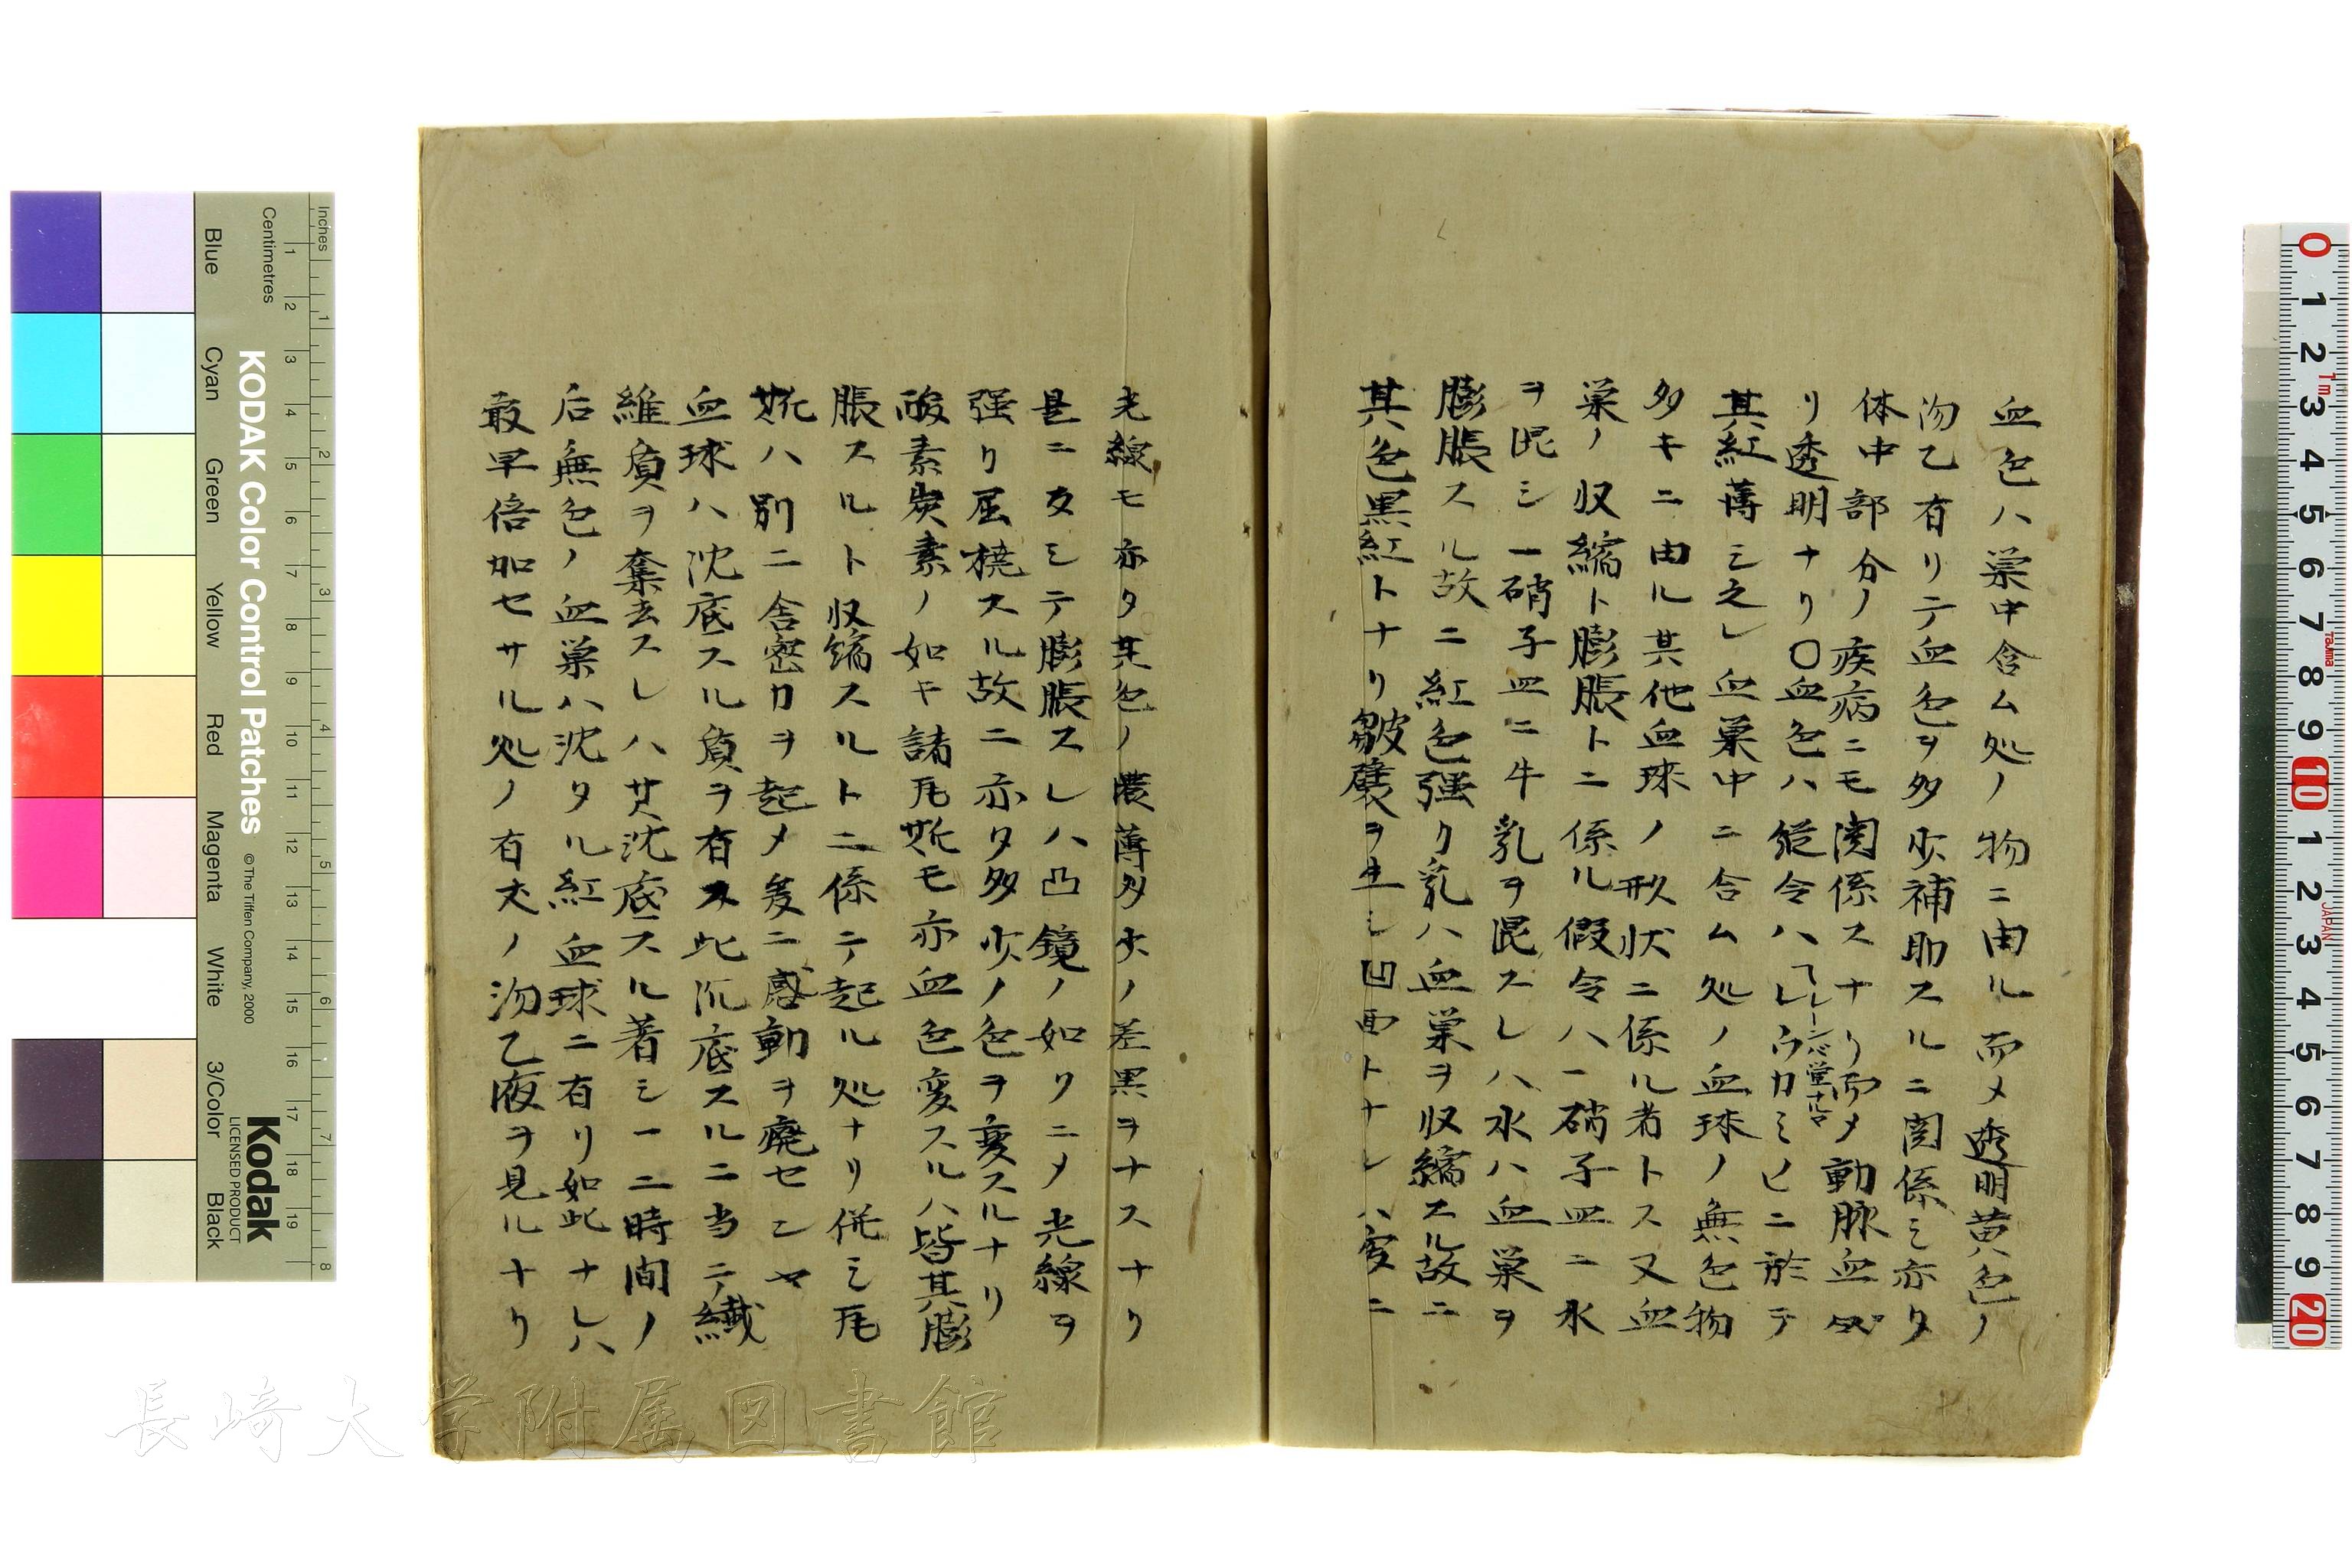 血色ハ巣中含ム処ノ物ニ由ル而メ透明黄色ノ
沕乙有リテ血色ヲ多少補助スルニ関係シ亦タ
体中部分ノ疾病ニモ関係スナリ而メ動脉血ハ
リ透明ナリ〇血色ハ縦令ハレウカミヒニ於テ
其紅薄シ之レ血巣中ニ含ム処ノ血球ノ無色物
多キニ由ル其他血球ノ形状ニ係ル者トス又血
巣ノ収縮ト膨脹トニ係ル假令ハ一硝子皿ニ水
ヲ混シ一硝子皿ニ牛乳ヲ混スレハ水ハ血巣ヲ
膨脹スル故ニ紅色强ク乳ハ血巣ヲ収縮スル故ニ
其色黒紅トナリ皺襞ヲ生シ凹面トナレハ変ニ
光線モ亦タ其色ノ濃薄多少ノ差異ヲナスナリ
是ニ反シテ膨脹スレハ凸鏡ノ如クニメ光線ヲ
强ク屈撓スル故ニ亦タ多少ノ色ヲ変スルナリ
酸素炭素ノ如キ諸瓦斯モ亦血色変スルハ皆其膨
脹スルト収縮スルトニ係テ起ル処ナリ併シ瓦
斯ハ別ニ舎密力ヲ起メ爰ニ感動ヲ廃セシム
血球ハ沈底スル質ヲ有ス此沉底スルニ当テ纎
維質ヲ奪去スレハ其沈底スル著シ一二時間ノ
后無色ノ血巣ハ沈タル紅血球ニ有リ如此ナレハ
最早倍加セサル処ノ有丈ノ沕乙液ヲ見ルナリ
Kodak
LICENSED PRODUCT
KODAK Color Control Patches
© The Tiffen Company, 2000
Inches
Centimetres
Blue
Cyan
Green
Yellow
Red
Magenta
White
3/Color
Black
長崎大学附属図書館